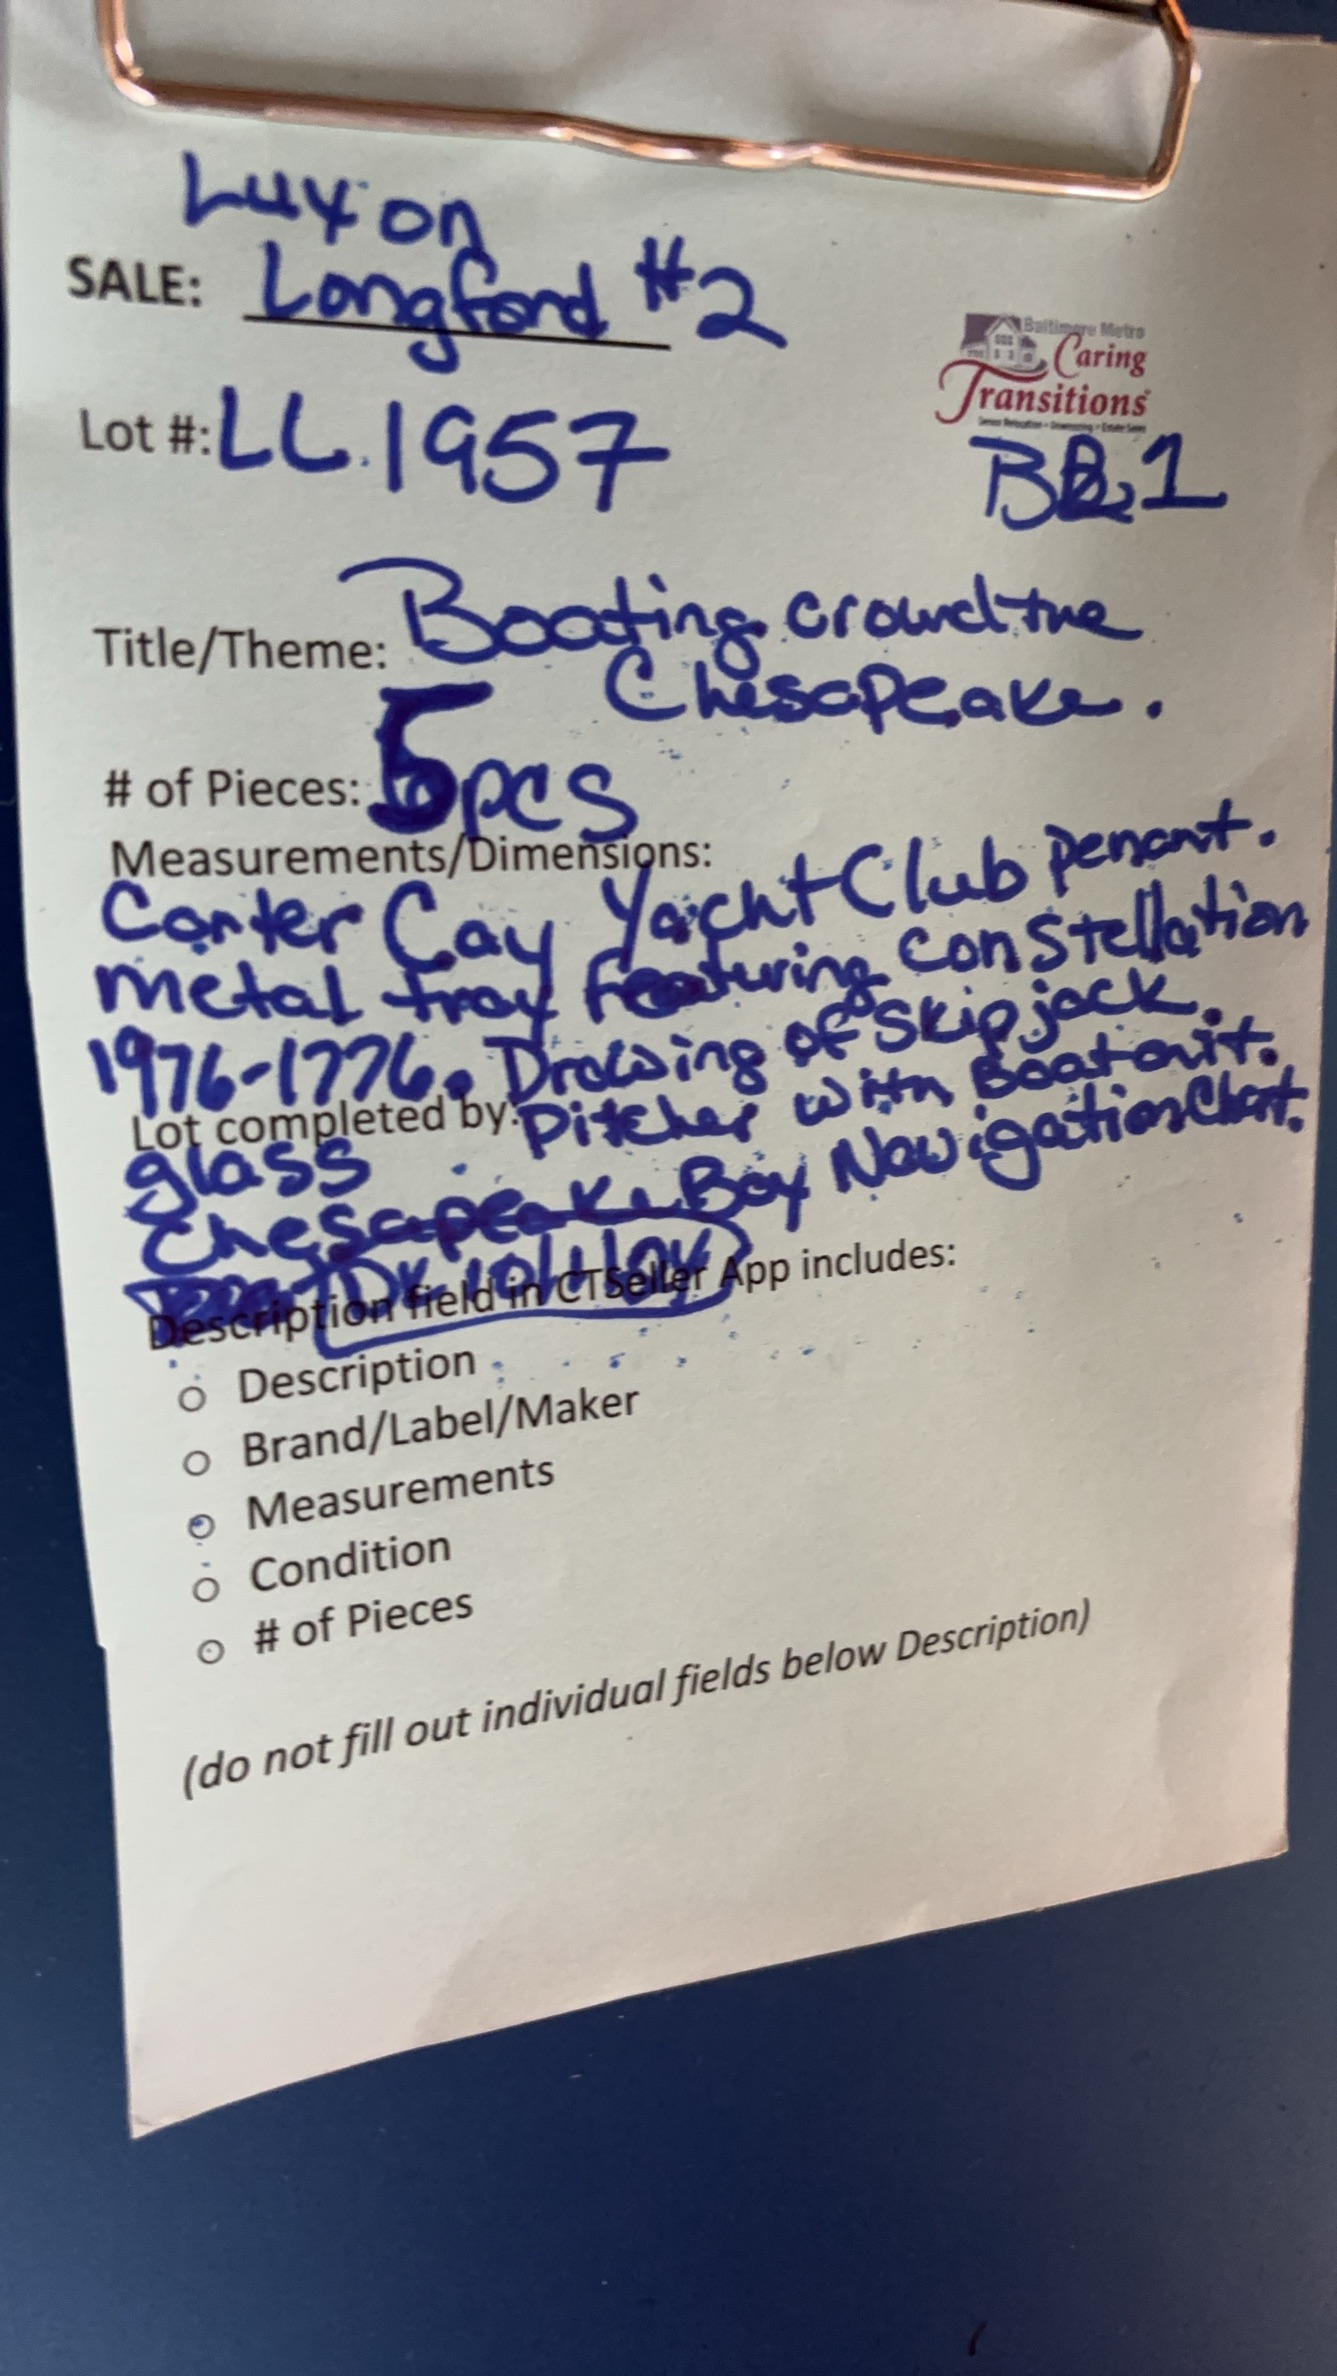 Lux on
SALE: Longford #2
Baltimore Metro
Caring
Transitions
Lot #: LL.1957
BB.1
Title/Theme: Boating around the
Chesapeake.
# of Pieces: 5pcs
Measurements/Dimensions:
Carter Cay Yacht Club penant.
metal tray featuring constellation
1976-1776. Drawing of Skipjack.
Lot completed by: Pitcher with Boat on it.
glass
Chesapeake Bay Navigation Chart.
Description field in CTSeller App includes:
Description
Brand/Label/Maker
Measurements
Condition
# of Pieces
(do not fill out individual fields below Description)